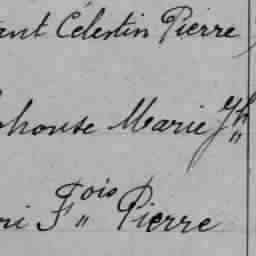 ant Célestin Pierre
phonse Marie Jh
ri Fois Pierre